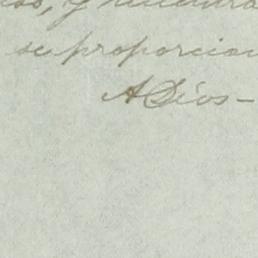 se proporcion
A Dios-